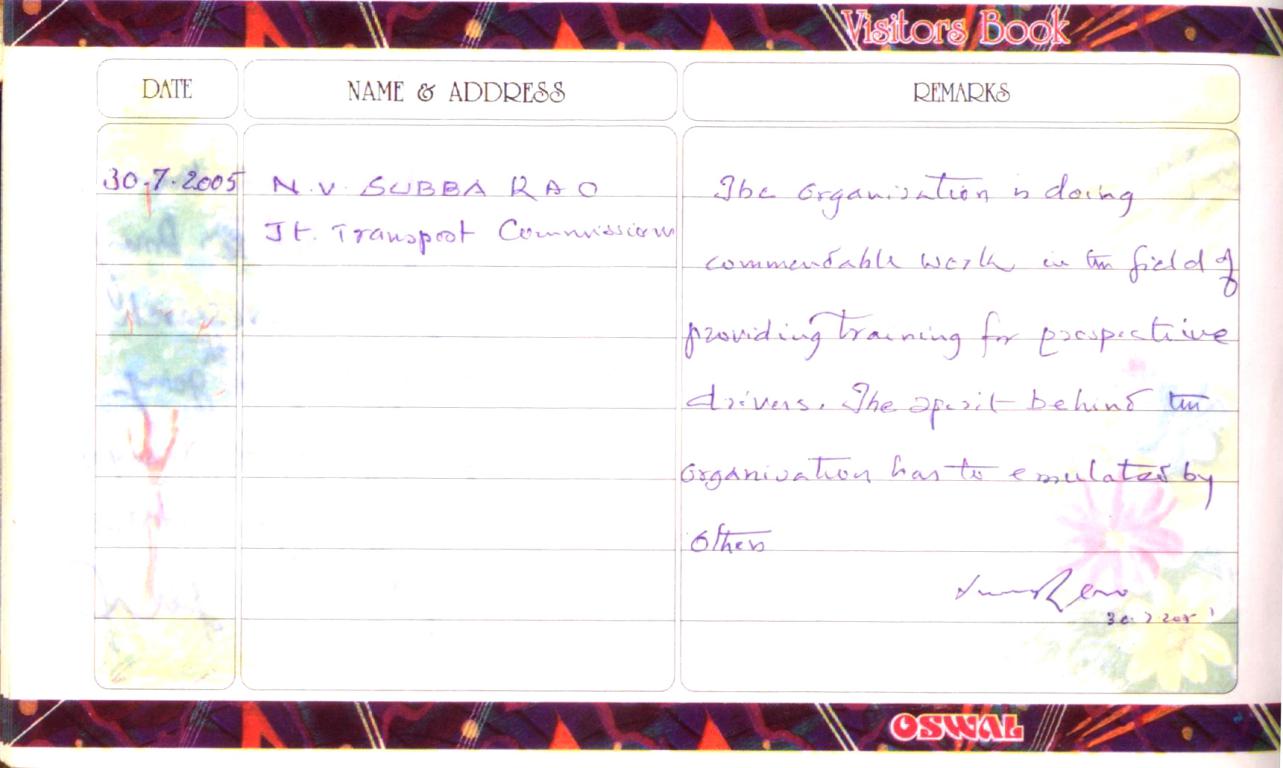 Visitors Book
DATE
NAME & ADDRESS
REMARKS
30.7.2005
N.V. SUBBA RAO
Jt. Transport Commission
The organisation is doing
commendable work in the field of
providing training for prospective
drivers. The spirit behind the
organisation has to emulated by
others
30.7.2005
OSWAL